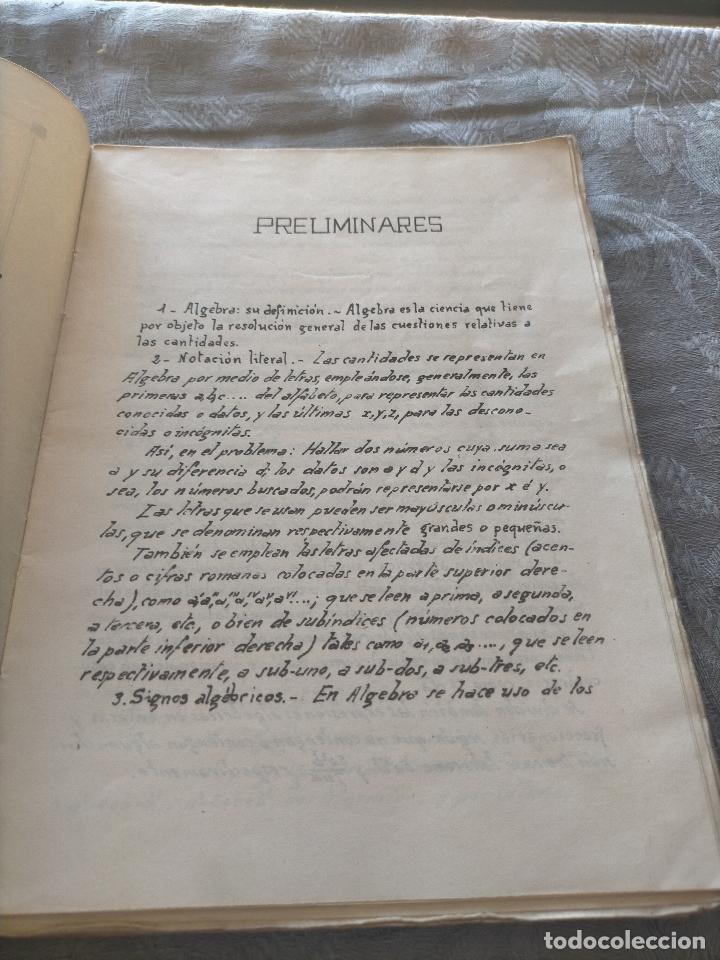 PRELIMINARES
1- Algebra: su definición.~ Algebra es la ciencia que tiene
por objeto la resolución general de las cuestiones relativas a
las cantidades.
2- Notación literal.- Las cantidades se representan en
Algebra por medio de letras, empleándose, generalmente, las
primeras a,b,c.... del alfabeto, para representar las cantidades
conocidas o datos, y las últimas x,y,z, para las descono-
cidas o incógnitas.
Así, en el problema: Hallar dos números cuya suma sea
a y su diferencia d; los datos son a y d y las incógnitas, o
sea, los números buscados, podrán representarse por x é y.
Las letras que se usan pueden ser mayúsculas o minúscu-
las, que se denominan respectivamente grandes o pequeñas.
También se emplean las letras afectadas de índices (acen-
tos o cifras romanas colocadas en la parte superior dere-
cha), como a', a'', a''', aᴵⱽ, aⱽ, aⱽᴵ...; que se leen a prima, a segunda,
a tercera, etc., o bien de subíndices (números colocados en
la parte inferior derecha) tales como a₁, a₂, a₃...., que se leen
respectivamente, a sub-uno, a sub-dos, a sub-tres, etc.
3. Signos algébricos.- En Algebra se hace uso de los
todocoleccion